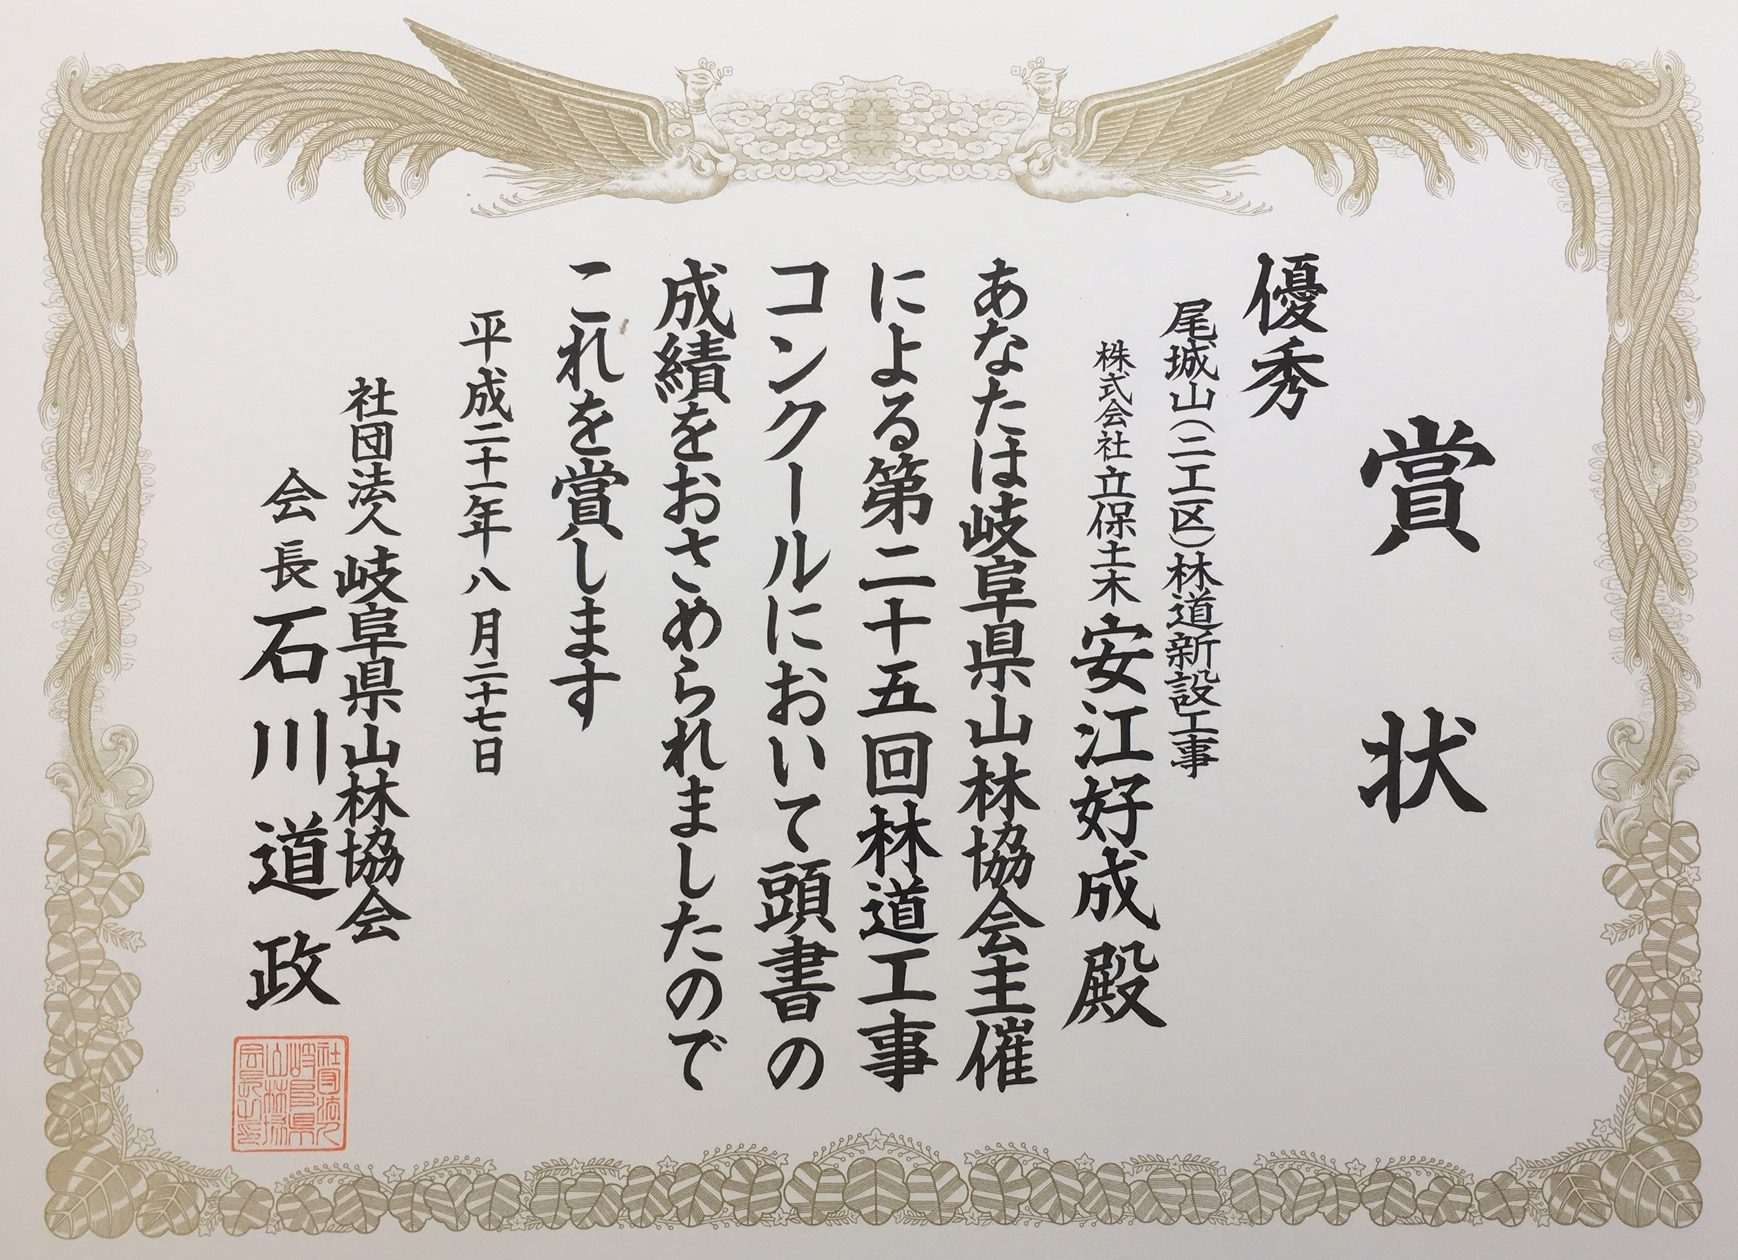 賞状
優秀
尾城山(二工区)林道新設工事
株式会社立保土木安江好成殿
あなたは岐阜県山林協会主催
による第二十五回林道工事
コンクールにおいて頭書の
成績をおさめられましたので
これを賞します
平成二十一年八月二十七日
社団法人岐阜県山林協会
会長石川道政
社団法人
岐阜県
山林協
会長之印